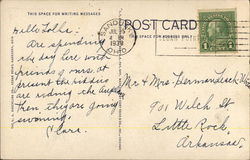 THIS SPACE FOR WRITING MESSAGES
POST CARD
THIS SPACE FOR ADDRESS ONLY
SANDUSKY
OHIO
1
Hello Folks:
Are spending
the day here with
friends of ours. at
present the kiddies
are riding the
then they are going
swimming.
Clara.
Mr & Mrs Herman
901 Welch St
Little Rock
Arkansas.